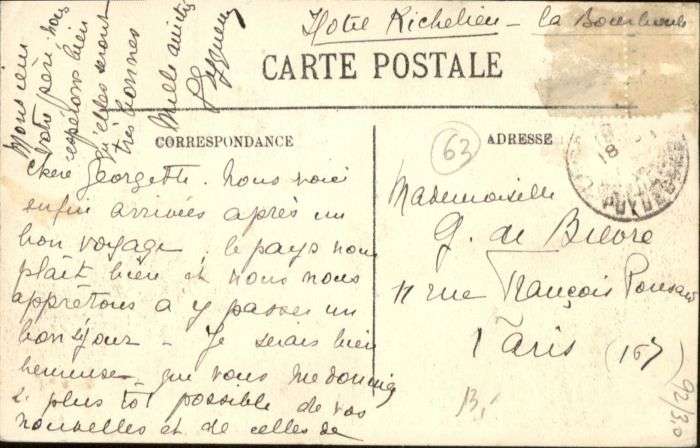 Hotel Richelieu - La Bourboule
CARTE POSTALE
CORRESPONDANCE
ADRESSE
63
chère Georgette. Nous voici
enfin arrivées après un
bon voyage. le pays nous
plaît bien et nous nous
apprêtons à y passer un
bon séjour - Je serais bien
heureuse que vous me donniez
le plus tôt possible de vos
nouvelles et de celles de
Monsieur
votre père. Nous
espérons bien
qu'elles seront
très bonnes
Mille amitiés
Mademoiselle
G. de Bièvre
11 rue François Ponsard
Paris (16)